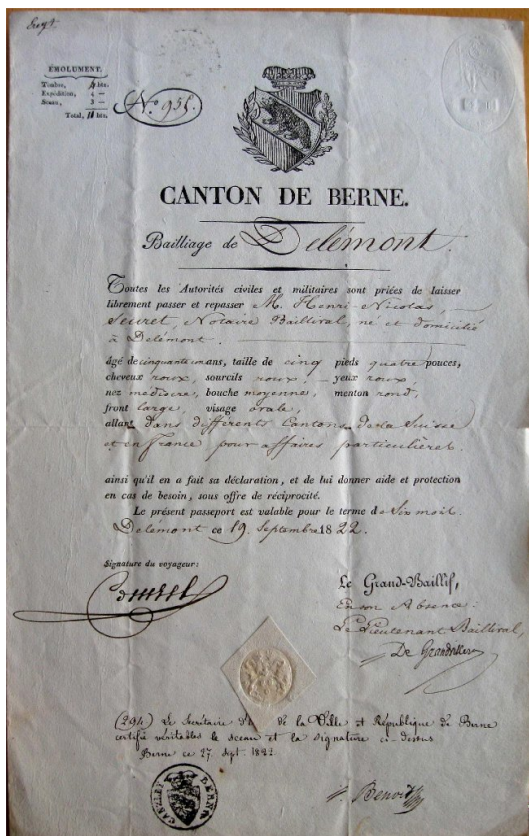 ÉMOLUMENT.
Timbre, 4 btz.
Expédition, 4 —
Sceau, 3 —
Total, 11 btz.
No. 935.
CANTON DE BERNE.
Bailliage de Delémont.
Toutes les Autorités civiles et militaires sont priées de laisser
librement passer et repasser M. Henri-Nicolas,
Seuret, Notaire Baillival, né et domicilié
à Delémont.
âgé de cinquante un ans, taille de cinq pieds quatre pouces,
cheveux roux, sourcils roux, yeux roux
nez médiocre, bouche moyenne, menton rond,
front large, visage ovale,
allant dans différents Cantons de la Suisse
et en France pour affaires particulières.
ainsi qu'il en a fait sa déclaration, et de lui donner aide et protection
en cas de besoin, sous offre de réciprocité.
Le présent passeport est valable pour le terme de Six mois.
Delémont ce 19. Septembre 1822.
Signature du voyageur:
Le Grand-Baillif,
En son Absence:
Le Lieutenant Baillival
De Grandvillers
(294) Le Secrétaire de la Ville et République de Berne
certifie véritables le sceau et la signature ci-dessus
Berne ce 27. Sept. 1822
Benoit
CANZLEY BERN